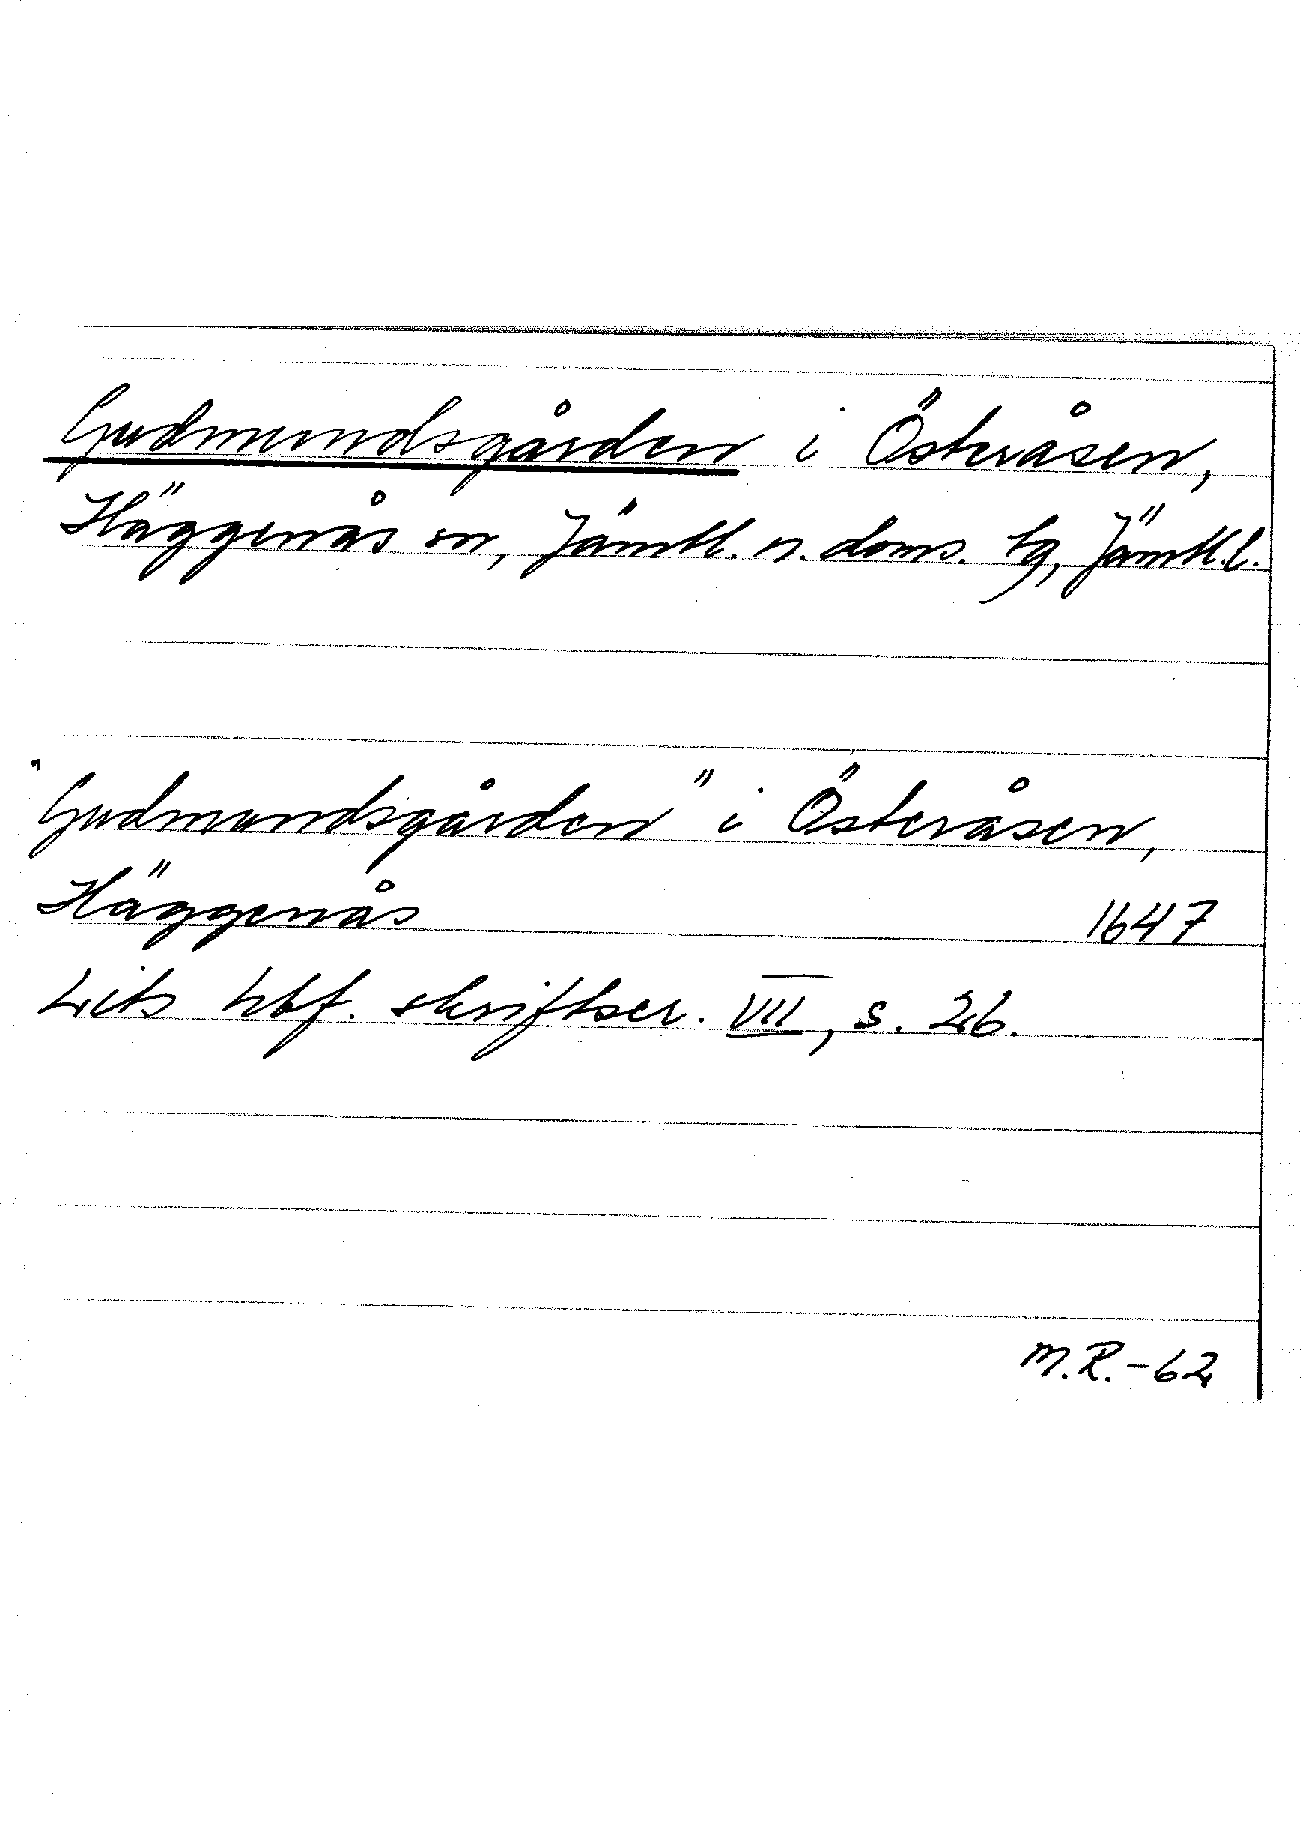 Gudmundsgården i Österåsen,
Häggenås sn, Jämtl. n. doms. tg, Jämtl.l.
"Gudmundsgården" i Österåsen,
Häggenås 1647
Lits hbf. skriftser. VII, s. 26.
M.R.-62